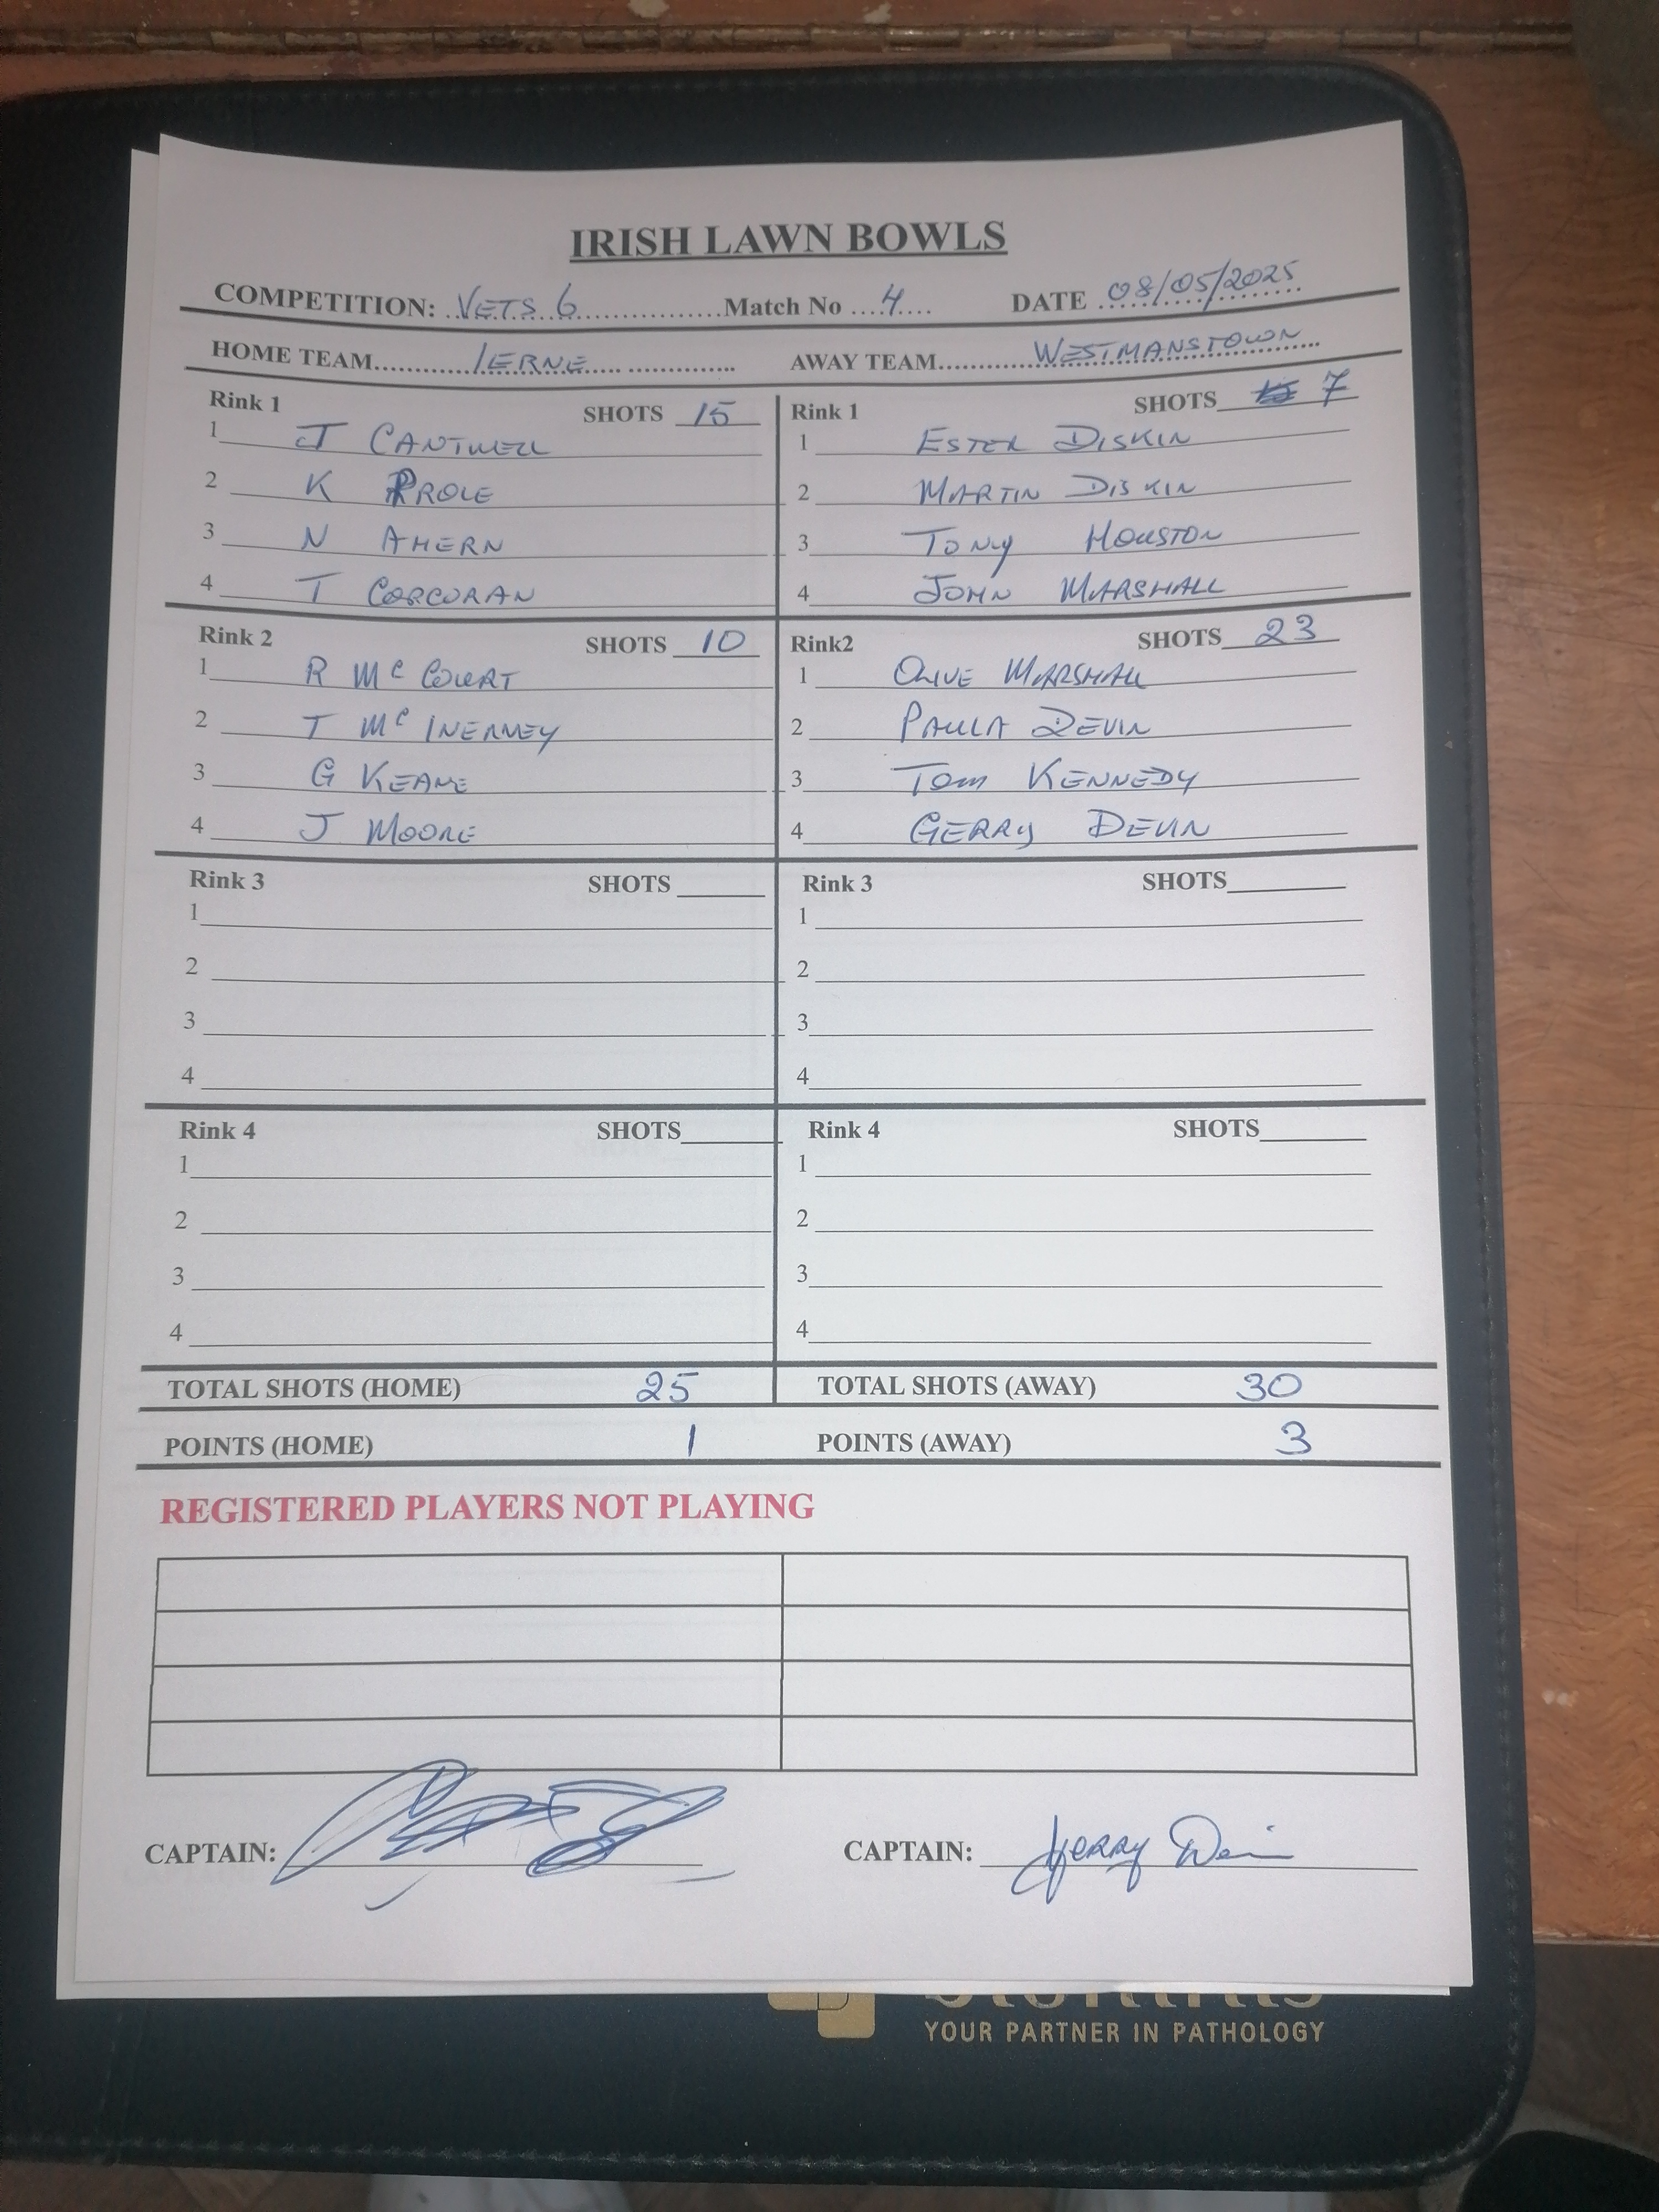 IRISH LAWN BOWLS
COMPETITION: VETS 6 Match No 4 DATE 08/05/2025
HOME TEAM IERNE AWAY TEAM WESTMANSTOWN
Rink 1 SHOTS 15
1 J CANTWELL
2 K PROLE
3 N AHERN
4 T CORCORAN
Rink 1 SHOTS 7
1 ESTER DISKIN
2 MARTIN DISKIN
3 TONY HOUSTON
4 JOHN MARSHALL
Rink 2 SHOTS 10
1 R Mc COURT
2 T Mc INERNEY
3 G KEANE
4 J MOORE
Rink2 SHOTS 23
1 OLIVE MARSHALL
2 PAULA DEVIN
3 TOM KENNEDY
4 GERRY DEVIN
Rink 3 SHOTS
1
2
3
4
Rink 3 SHOTS
1
2
3
4
Rink 4 SHOTS
1
2
3
4
Rink 4 SHOTS
1
2
3
4
TOTAL SHOTS (HOME) 25 TOTAL SHOTS (AWAY) 30
POINTS (HOME) 1 POINTS (AWAY) 3
REGISTERED PLAYERS NOT PLAYING
CAPTAIN: CAPTAIN: Gerry Devin
YOUR PARTNER IN PATHOLOGY